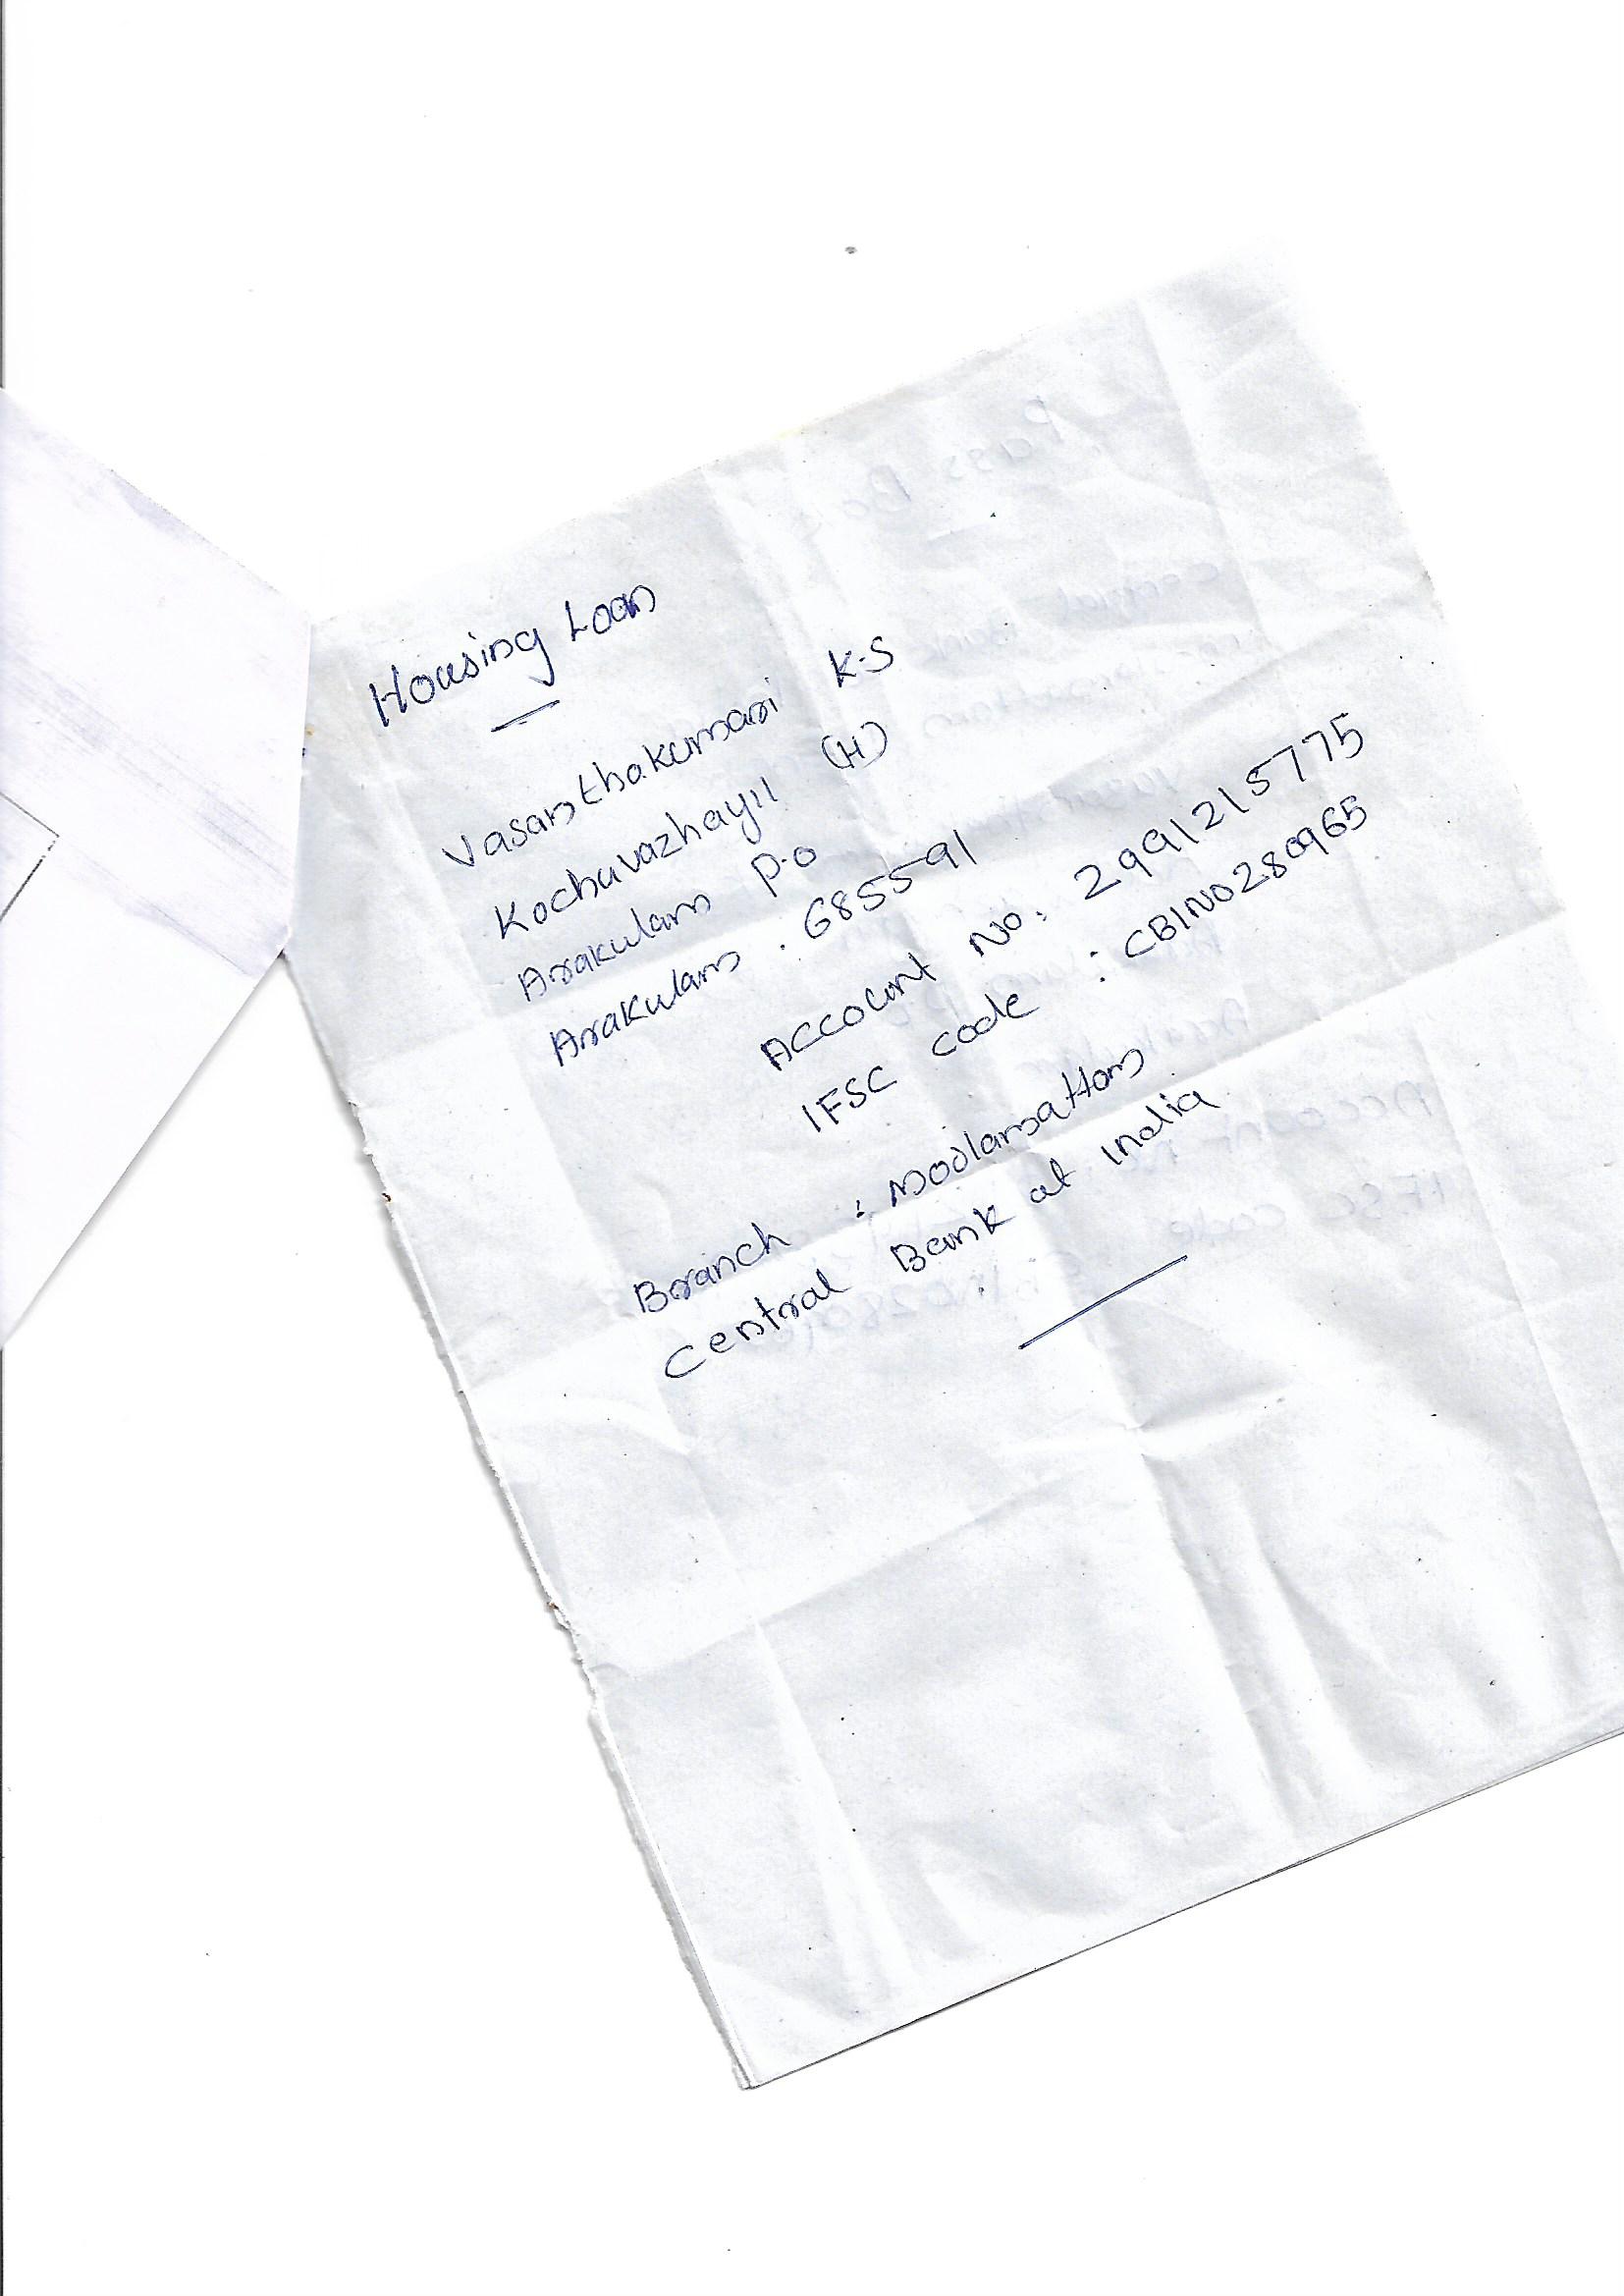 Housing Loan
Vasanthakumari K.S
Kochuvazhayil (H)
Arakulam P.O
Arakulam : 685591
Account No: 2991215775
IFSC code : CBIN0280965
Branch : Moolamattom
Central Bank of India